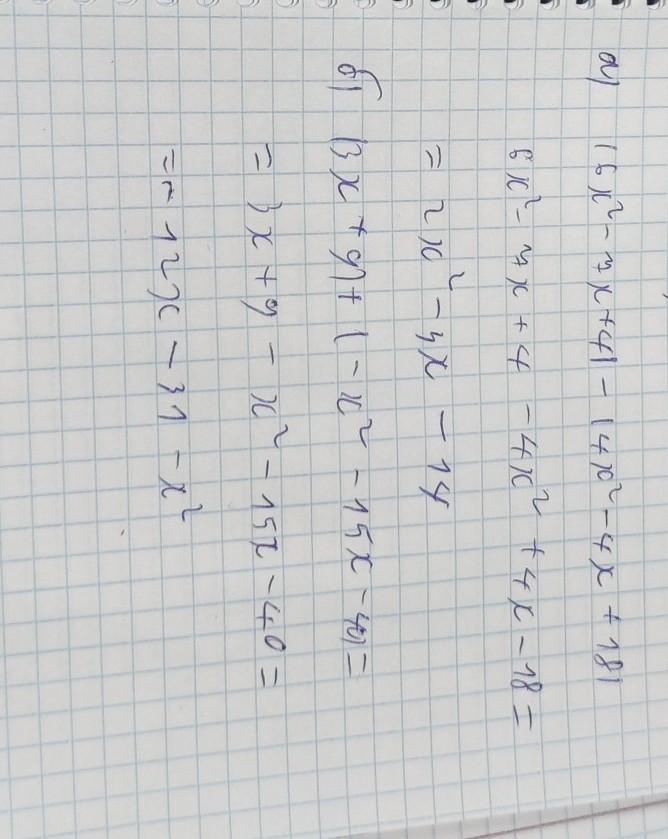 а) (6x² - 7x + 4) - (4x² - 4x + 18)
6x² - 7x + 4 - 4x² + 4x - 18 =
= 2x² - 3x - 14
б) (3x + 9) + (-x² - 15x - 40) =
= 3x + 9 - x² - 15x - 40 =
= - 12x - 31 - x²